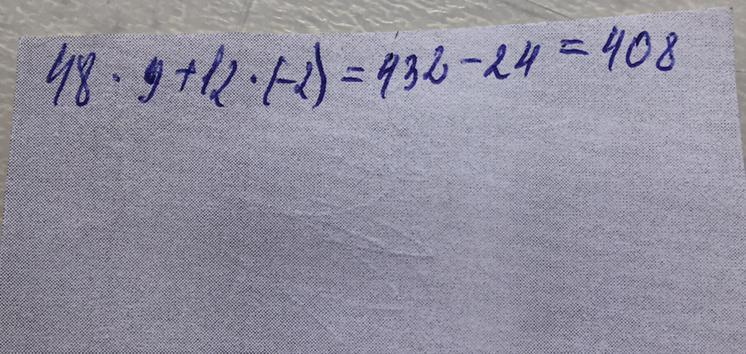 48 · 9 + 12 · (-2) = 432 - 24 = 408